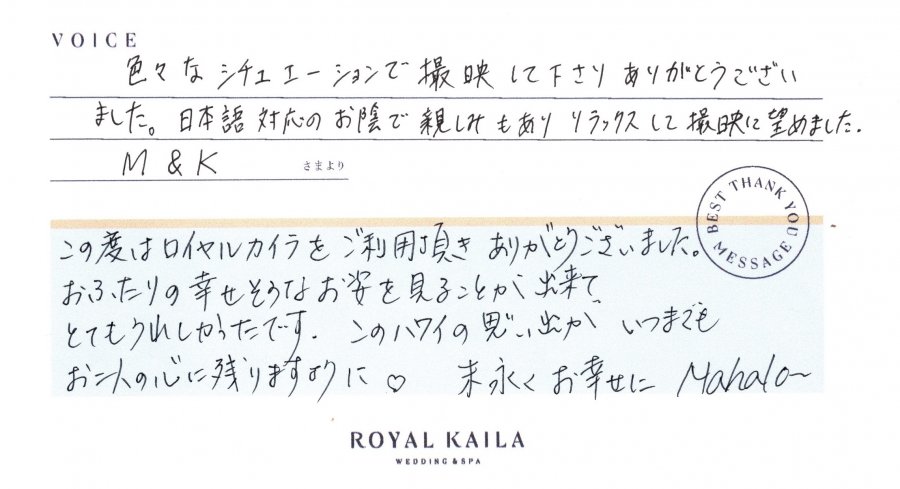 VOICE
色々な シチュエーションで 撮映 して下さり ありがとうござい
ました。日本語対応のお陰で 親しみもあり リラックスして撮映に望めました.
M & K さまより
BEST THANK YOU MESSAGE
この度はロイヤルカイラをご利用頂き ありがとうございました。
おふたりの幸せそうなお姿を見ることが出来て
とてもうれしかったです. このハワイの思い出が いつまでも
お二人の心に残りますように♡ 末永くお幸せに Mahalo~
ROYAL KAILA
WEDDING & SPA